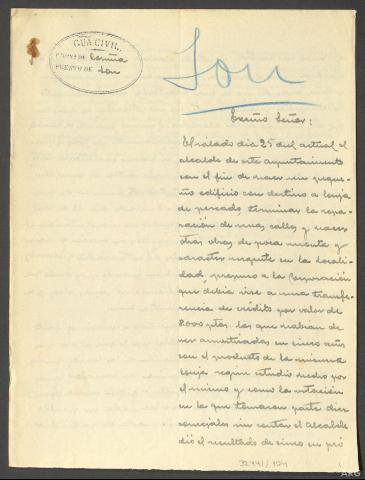 GUA. CIVIL.
COMD. DE Coruña
PUESTO DE Son
Son
Excmo Señor:
El sábado dia 25 del actual el
alcalde de este ayuntamiento
con el fin de hacer un peque-
ño edificio con destino a lonja
de pescado, terminar la repa-
ración de unas calles y hacer
otras obras de poca monta y
caracter urgente en la locali-
dad, propuso a la Corporación
que debia irse a una transfe-
rencia de créditos por valor de
8.000 ptas. las que habian de
ser amortizadas en cinco años
con el producto de la misma
lonja segun estudio hecho por
el mismo y como la votación
en la que tomaron parte diez
concejales sin contar el Alcalde
dió el resultado de cinco en pró
32441/124
ARG